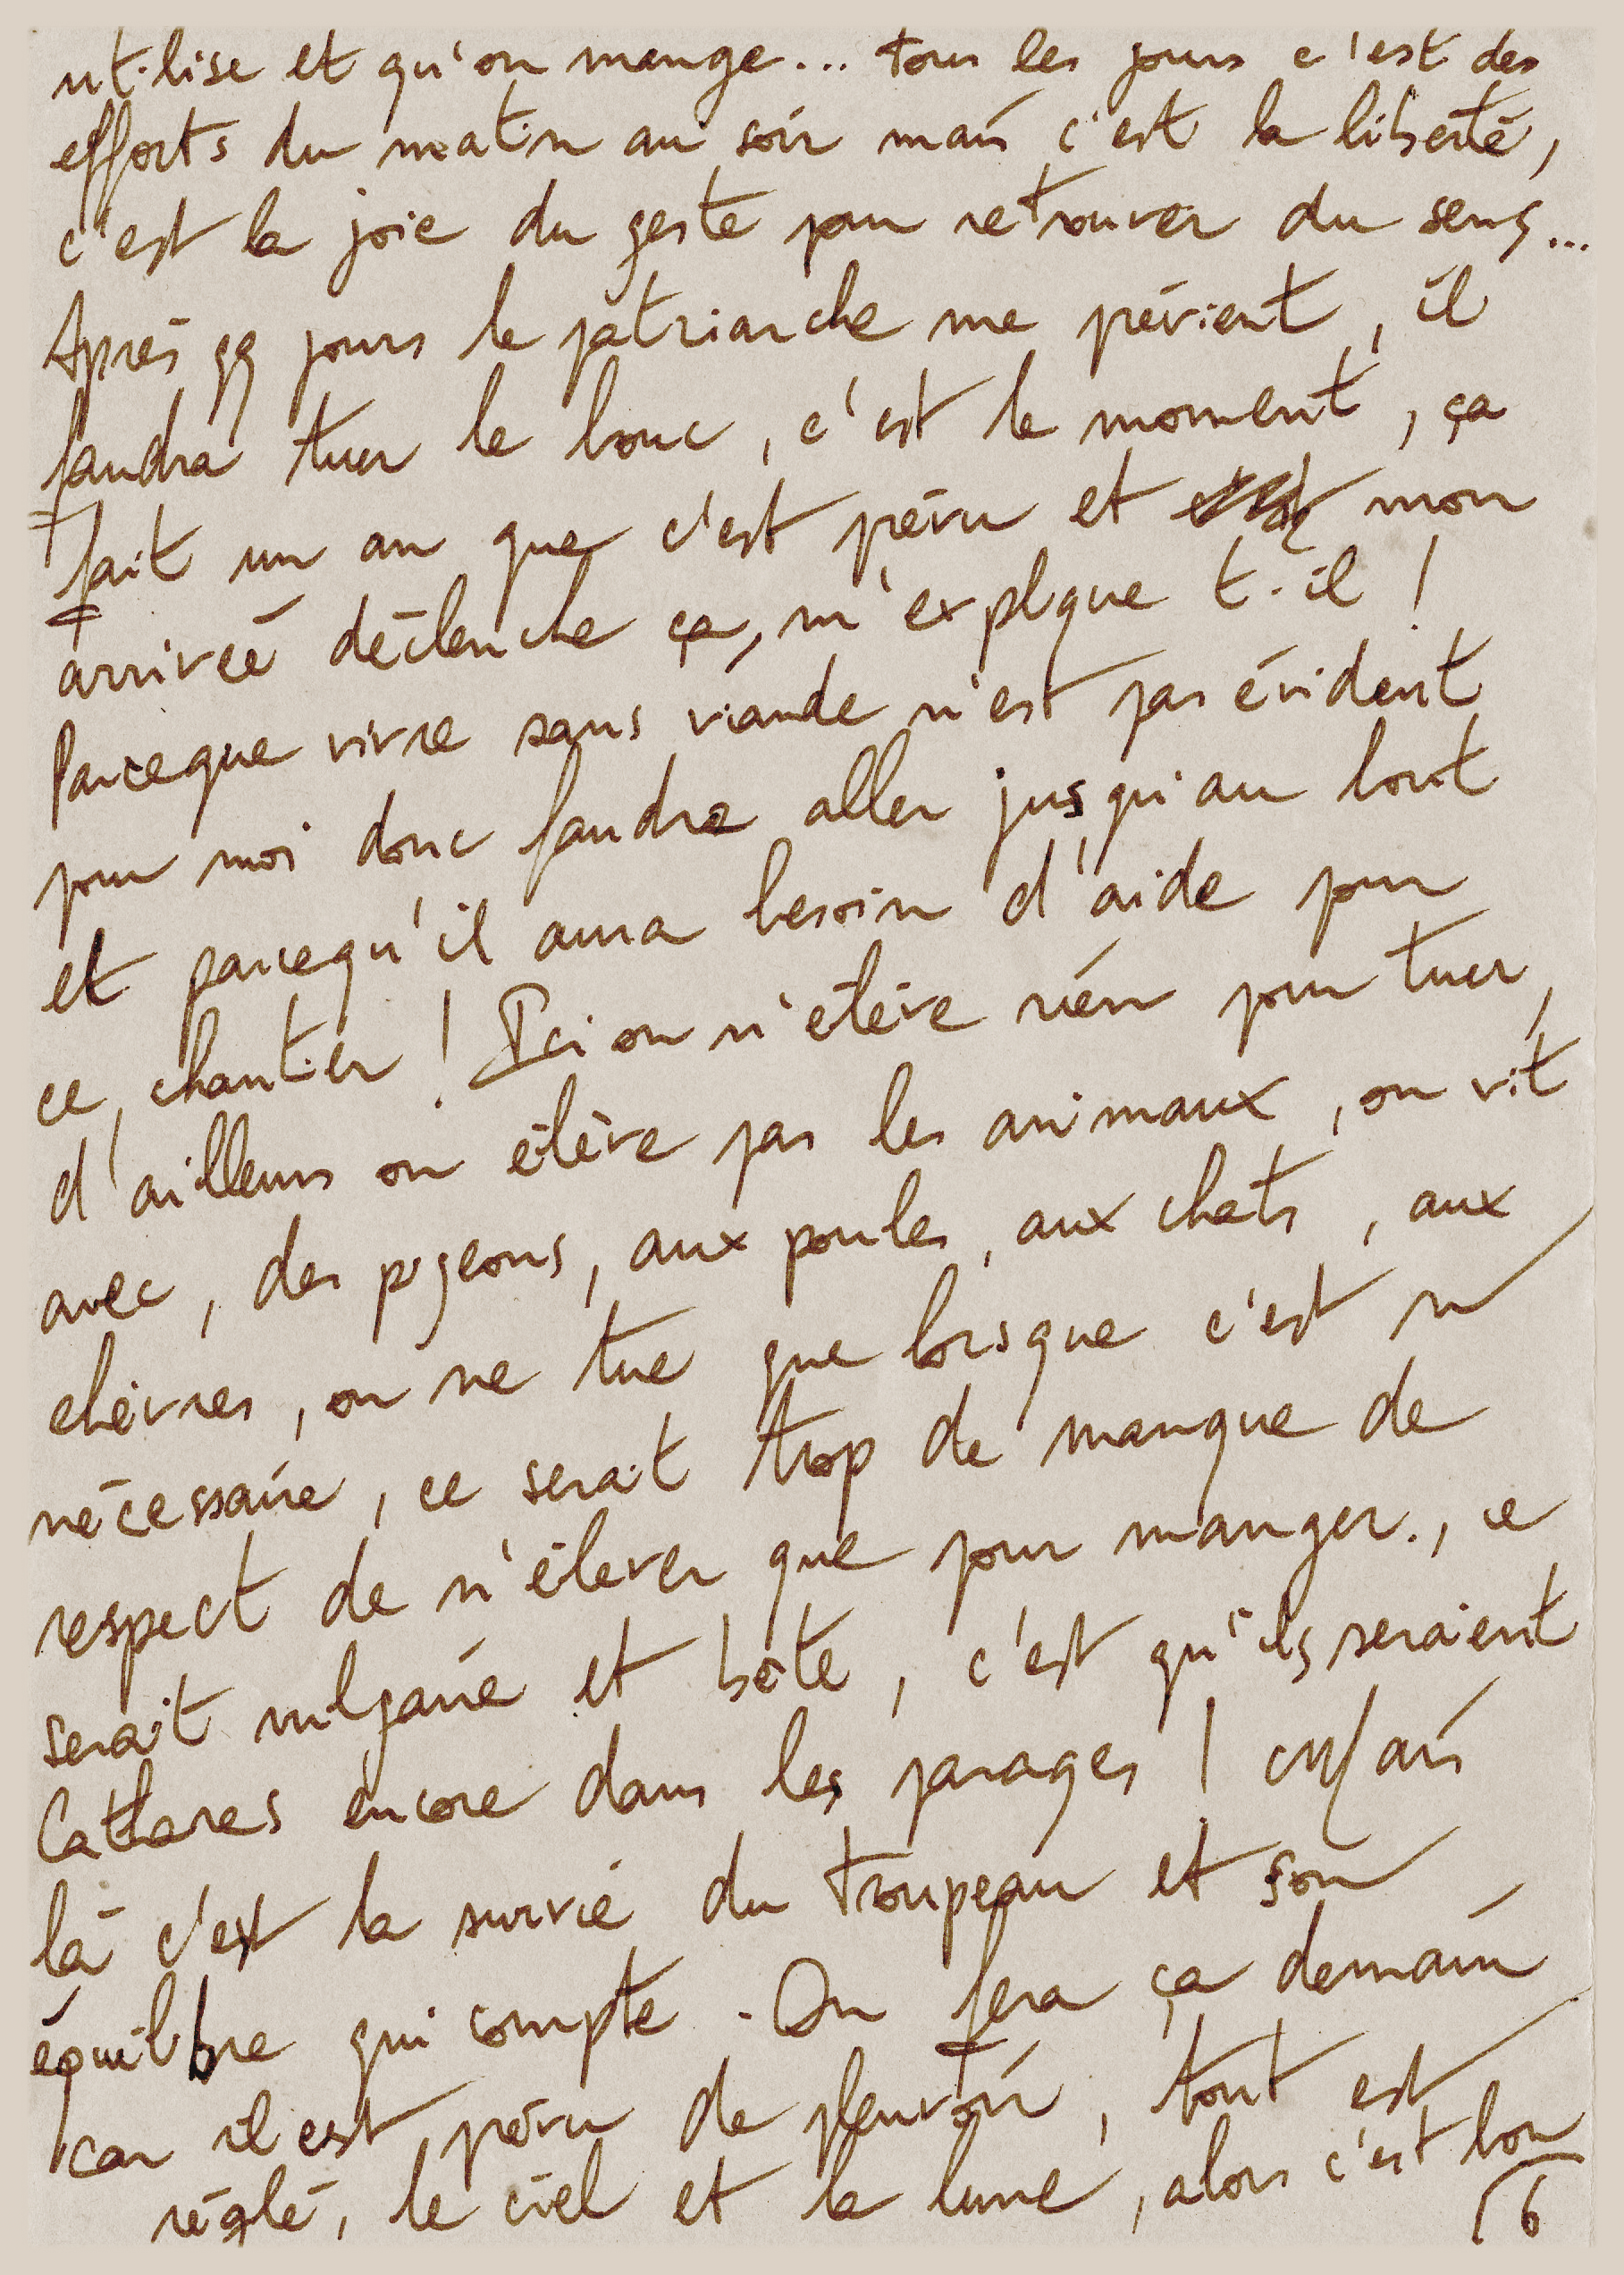 utilise et qu'on mange... tous les jours c'est des
efforts du matin au soir mais c'est la liberté,
c'est la joie du geste pour retrouver du sens...
Après qq jours le patriarche me prévient, il
faudra tuer le bouc, c'est le moment, ça
fait un an que c'est prévu et mon
arrivée déclenche ça, m'explique t-il !
Parceque vivre sans viande n'est pas évident
pour moi donc faudra aller jusqu'au bout
et parcequ'il aura besoin d'aide pour
ce chantier ! Ici on n'élève rien pour tuer,
d'ailleurs on élève pas les animaux, on vit
avec, des pigeons, aux poules, aux chats, aux
chèvres, on ne tue que lorsque c'est
nécessaire, ce serait trop de manque de
respect de n'élever que pour manger., ce
serait vulgaire et bête, c'est qu'ils seraient
Cathares encore dans les parages ! Mais
là c'est la survie du troupeau et son
équilibre qui compte. On fera ça demain
car il est prévu de pleuvoir, tout est
réglé, le ciel et la lune, alors c'est bon
16